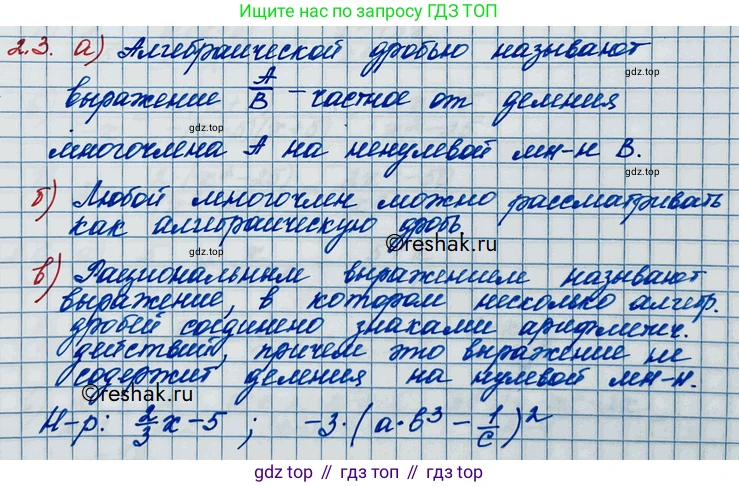 Ищите нас по запросу ГДЗ ТОП
2.3. а) Алгебраической дробью называют
gdz.top
выражение A/B – частное от деления
gdz.top
gdz.top
многочлена A на ненулевой мн-н B.
б) Любой многочлен можно рассматривать
как алгебраическую дробь.
©reshak.ru
gdz.top
в) Рациональным выражением называют
выражение, в котором несколько алгебр.
дробей соединено знаками арифметич.
действий, причем это выражение не
содержит деления на нулевой мн-н.
©reshak.ru
gdz.top
Н-р: 2/3 x – 5 ; –3·(a·b³ – 1/c)²
gdz.top // гдз.топ // gdz.top // гдз.топ